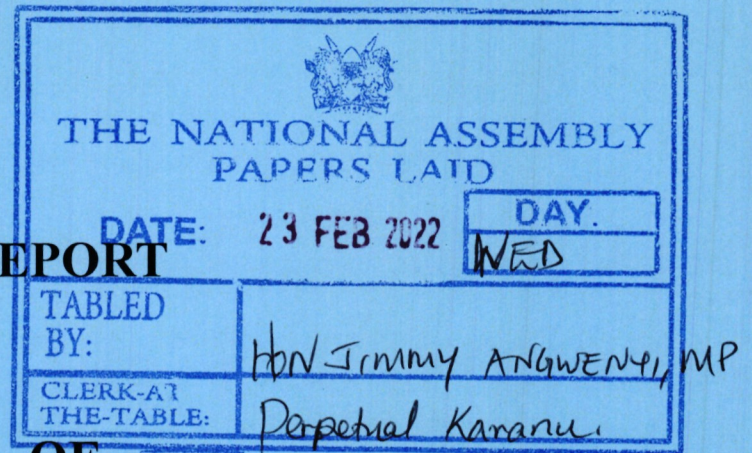 THE NATIONAL ASSEMBLY
PAPERS LAID
DATE: 23 FEB 2022
DAY.
WED
EPORT
TABLED
BY:
HON JIMMY ANGWENYI, MP
CLERK-AT
THE-TABLE:
Perpetual
OF